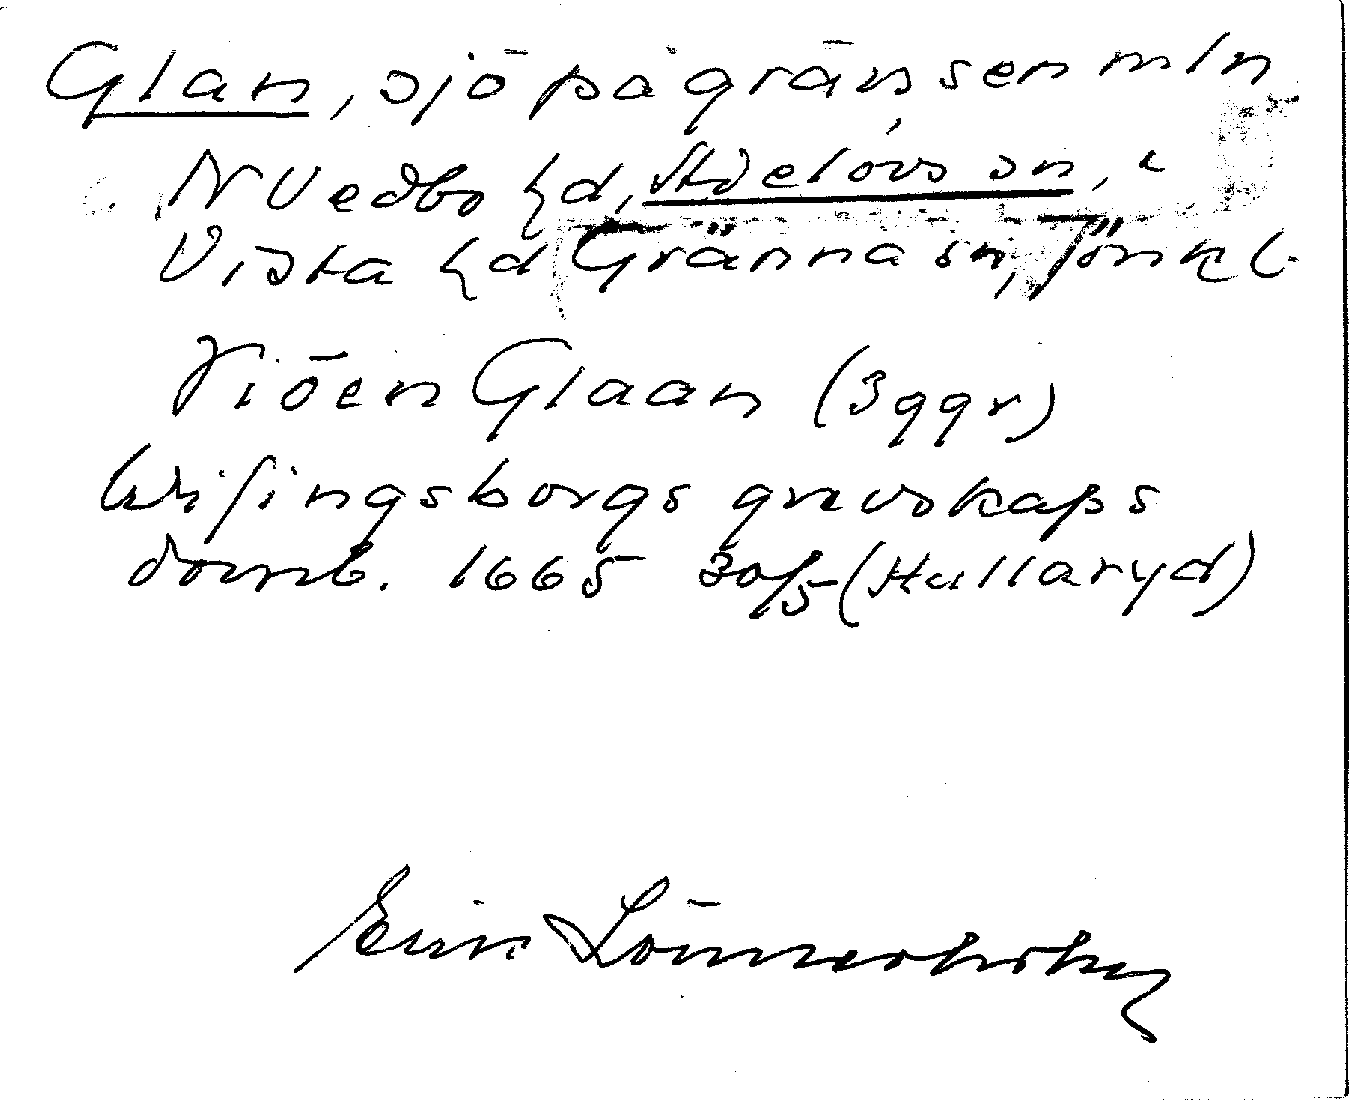 Glan, sjö på gränsen mln
N Vedbo hd, Adelövs sn, i
Vista hd Gränna sn, Jönk l.
Siöen Glaan (3 ggr)
Wisingsborgs grevskaps
domb. 1665 30/5 (Hullaryd)
Erik